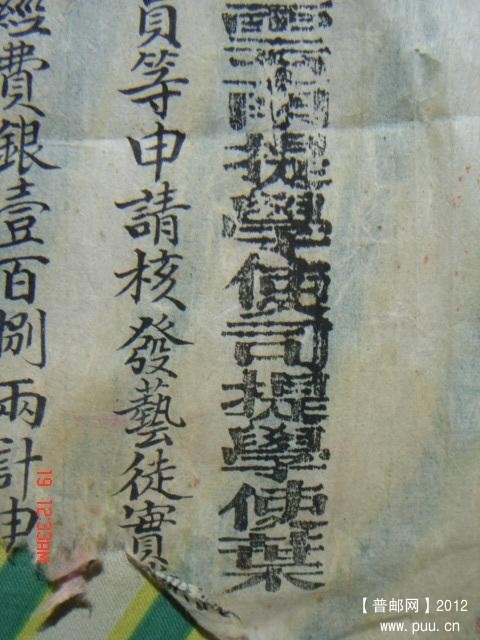 雲南提學使司提學使葉
員等申請核發藝徒實
經費銀壹百捌兩計申
19 12:33AM
【普邮网】2012
www.puu.cn